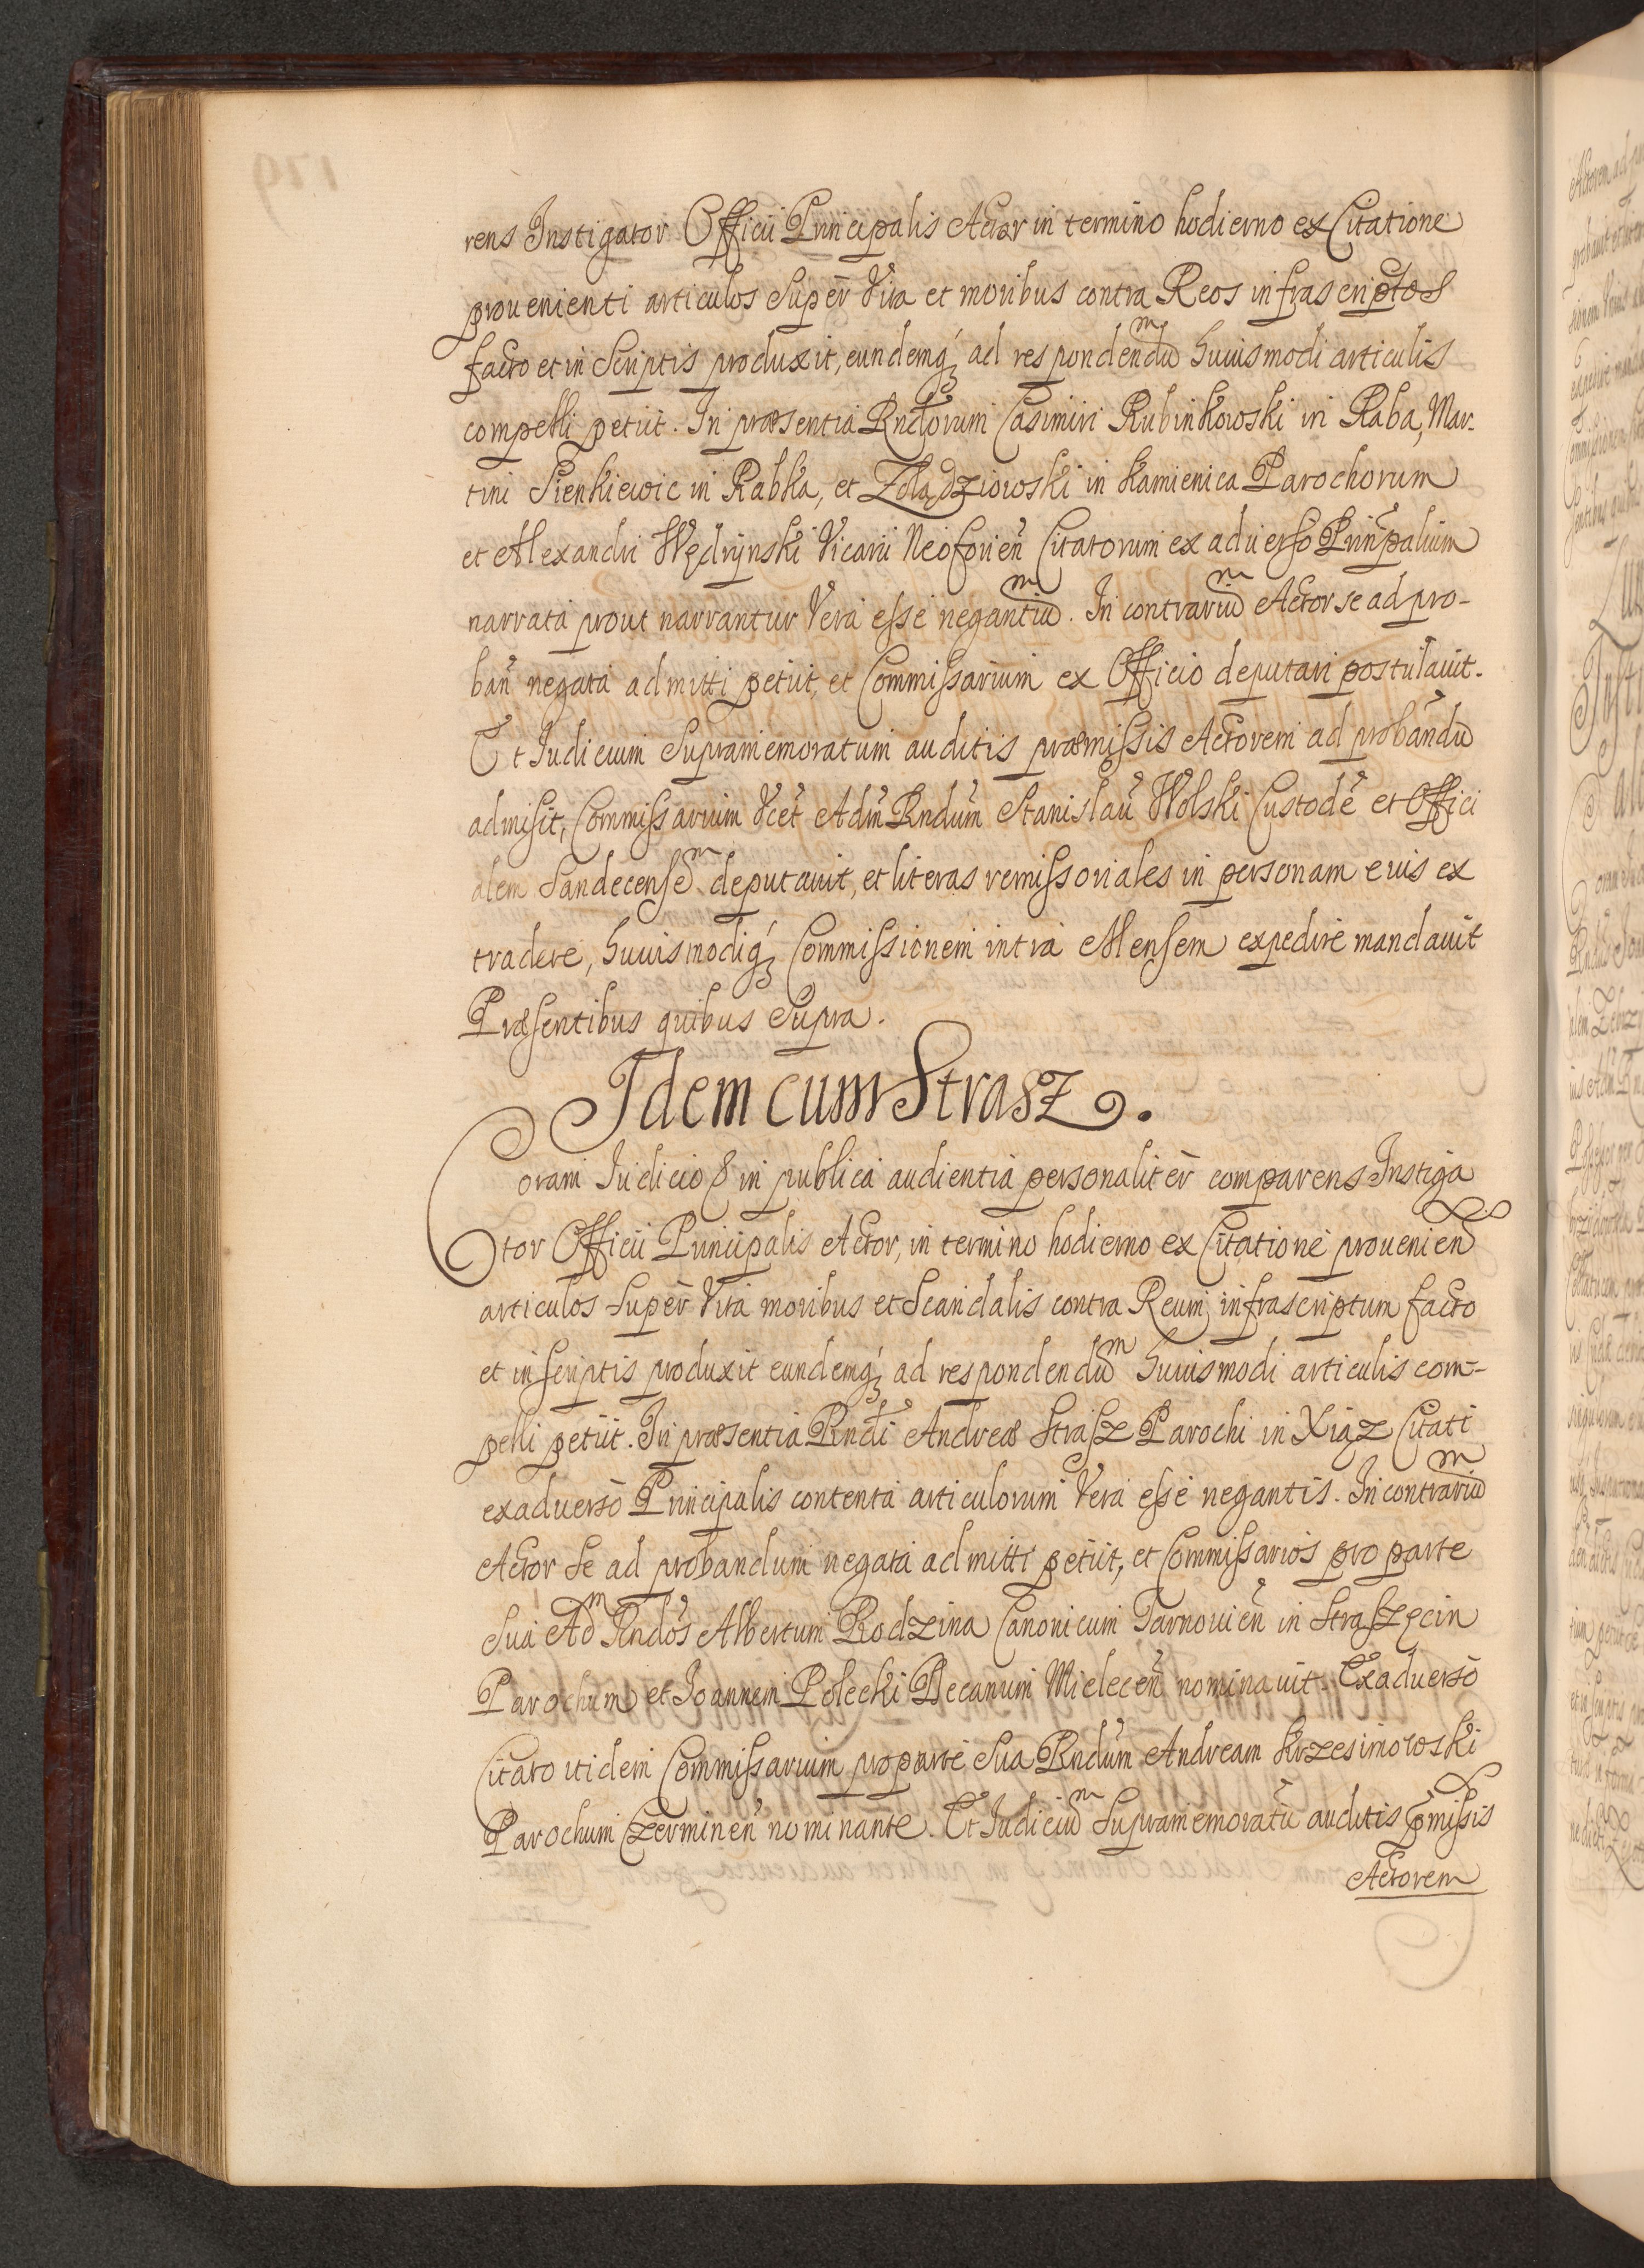 rens Instigator Officii Principalis Actor in termino hodierno ex Citatione
prouenienti articulos Super Vita et moribus contra Reos infrascriptos
facto et in Scriptis produxit, eundemq́ꝫ ad respondendũ huiusmodi articulis
compelli petiit. In præsentia Rndorum Casimiri Rubinkowski in Raba, Mar-
tini Sienkiewic in Rabka, et Zołądziowski in Kamienica Parochorum
et Alexandri Wędrÿnski Vicarii Neoforień Citatorum ex aduerso Prinpalium
narrata prout narrantur Vera esse negantiũ. In contrariũ Actor se ad pro-
bań negata admitti petiit, et Commissarium ex Officio deputari postulauit.
Et Iudicium Supramemoratum auditis præmissis Actorem ad probandũ
admisit, Commissarium Vcet Adm̃ Rndum̃ Stanislaũ Wolski Custodẽ et Offici
alem Sandecensẽ deputauit, et literas remissoriales in personam eius ex
tradere, huiusmodiq́ꝫ Commissionem intra Mensem expedire mandauit
Præsentibus quibus Supra.
Idem cum Strasz.
Coram Iudicio & in publica audientia personaliter comparens Instiga
tor Officii Principalis Actor, in termino hodierno ex Citatione prouenien
articulos Super Vita moribus et Scandalis contra Reum infrascriptum facto
et in scriptis produxit eundemq́ꝫ ad respondendũ huiusmodi articulis com-
pelli petiit. In præsentia Rndi Andreæ Strasz Parochi in Xiąz Citati
exaduerso Principalis contenta articulorum Vera esse negantis. In contrariũ
Actor Se ad probandum negata admitti petiit, et Commissarios pro parte
Sua Adm Rndos Albertum Rodzina Canonicum Tarnouień in Straszęcin
Parochum et Ioannem Polecki Decanum Mieleceń nominauit. Exaduerso
Citato itidem Commissarium pro parte Sua Rndum Andream Krzesimowski
Parochum Czermineń nominante. Et Iudiciũ Supramemoratũ auditis p̃missis
Actorem